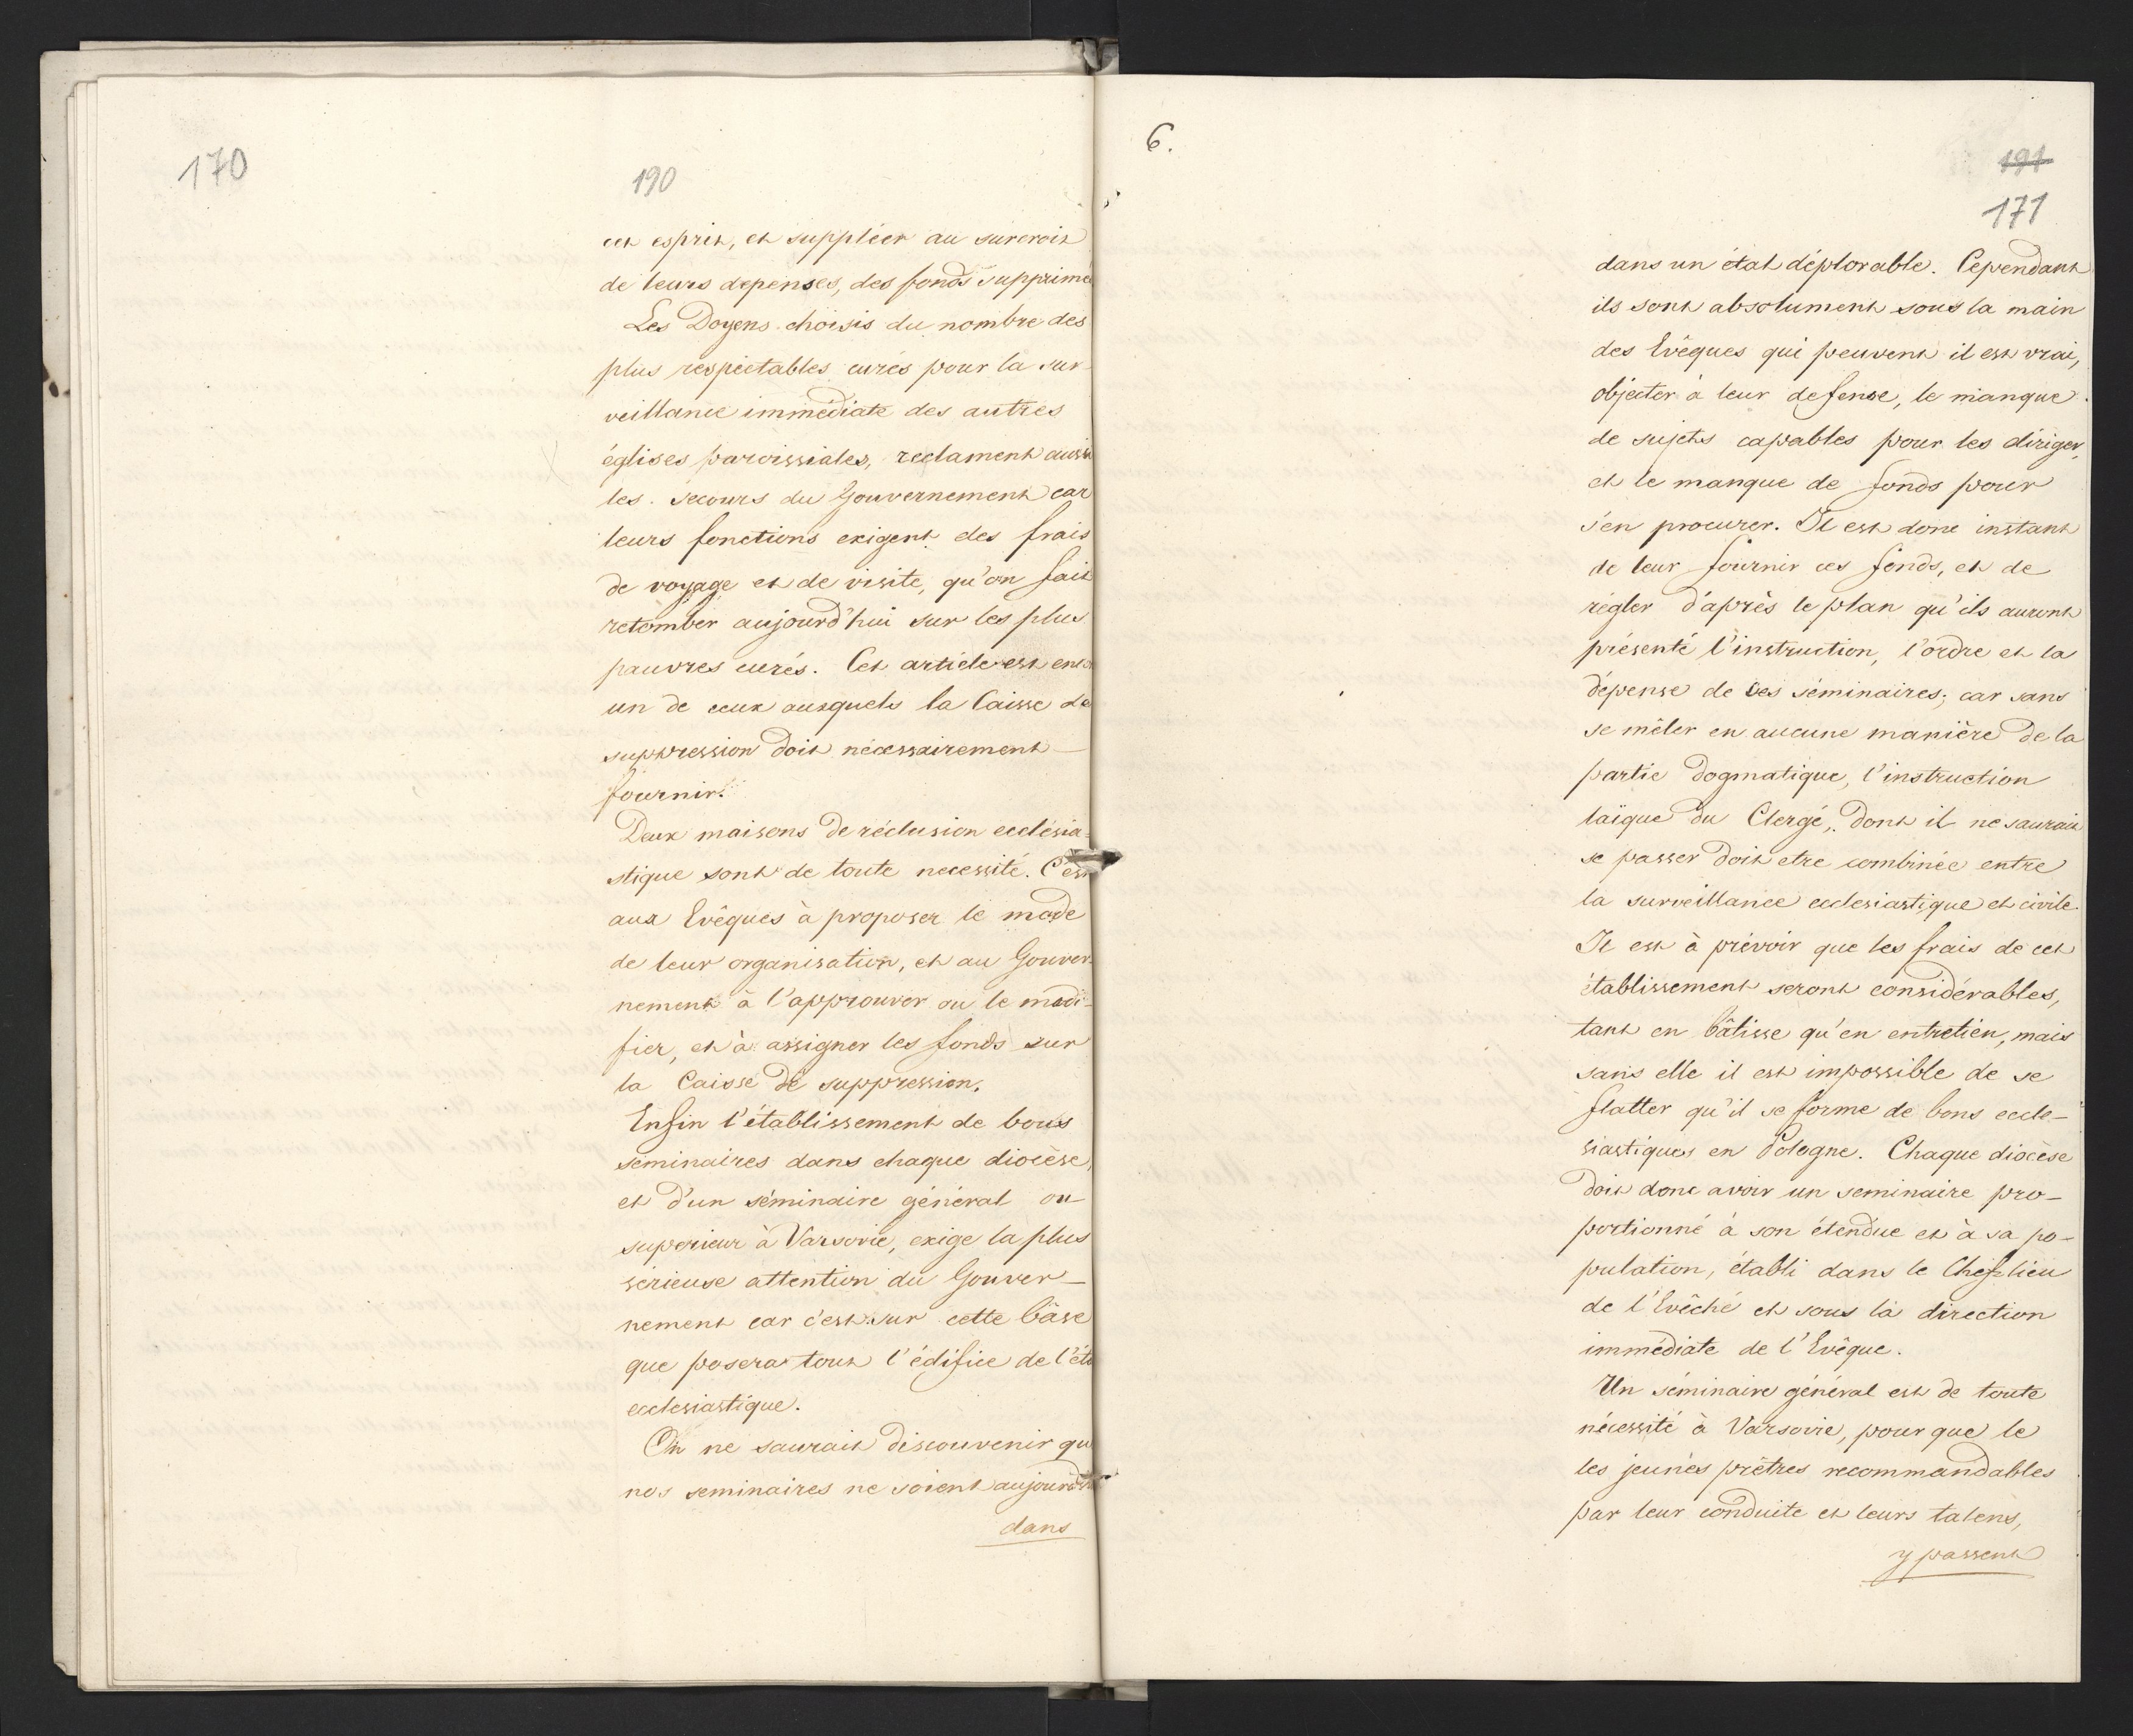 170
190
cet esprit, et suppléer au surcroit
de leurs depenses, des fonds supprimé
Les Doyens choisis du nombre des
plus respectables curés pour la sur-
veillance immédiate des autres
églises paroissiales, reclament aussi
les secours du Gouvernement car
leurs fonctions exigent des frais
de voyage et de visite, qu'on fait
retomber aujourd'hui sur les plus
pauvres curés. Cet article est enco
un de ceux auxquels la Caisse de
suppression doit nécessairement
fournir.
Deux maisons de réclusion ecclésia-
stique sont de toute necessité. C'est
aux Evêques à proposer le mode
de leur organisation, et au Gouver-
nement à l'approuver ou le modi-
fier, et à assigner les fonds sur
la Caisse de suppression.
Enfin l'établissement de bons
seminaires dans chaque diocèse,
et d'un séminaire général ou
superieur à Varsovie, exige la plus
sérieuse attention du Gouver-
nement car c'est sur cette bâse
que posera tout l'édifice de l'éta
ecclesiastique.
On ne saurait disconvenir qu
nos seminaires ne soient aujourd'h
dans
6.
191
171
dans un état déplorable. Cependant
ils sont absolument sous la main
des Evêques qui peuvent il est vrai,
objecter à leur defense, le manque
de sujets capables pour les diriger,
et le manque de fonds pour
s'en procurer. Il est donc instant
de leur fournir ces fonds, et de
régler d'après le plan qu'ils auront
présenté l'instruction, l'ordre et la
dépense de ces séminaires; car sans
se mêler en aucune manière de la
partie dogmatique, l'instruction
laïque du Clergé, dont il ne saurait
se passer doit etre combinée entre
la surveillance ecclesiastique et civile.
Il est à prévoir que les frais de cet
établissement seront considérables,
tant en bâtisse qu'en entretien, mais
sans elle il est impossible de se
flatter qu'il se forme de bons eccle-
siastiques en Pologne. Chaque diocèse
doit donc avoir un seminaire pro-
portionné à son étendue et à sa po-
pulation, établi dans le Chef-lieu
de l'Evêché et sous la direction
immédiate de l'Evêque.
Un séminaire général est de toute
nécessité à Varsovie, pour que le
les jeunes prêtres recommandables
par leur conduite et leurs talens,
y passent